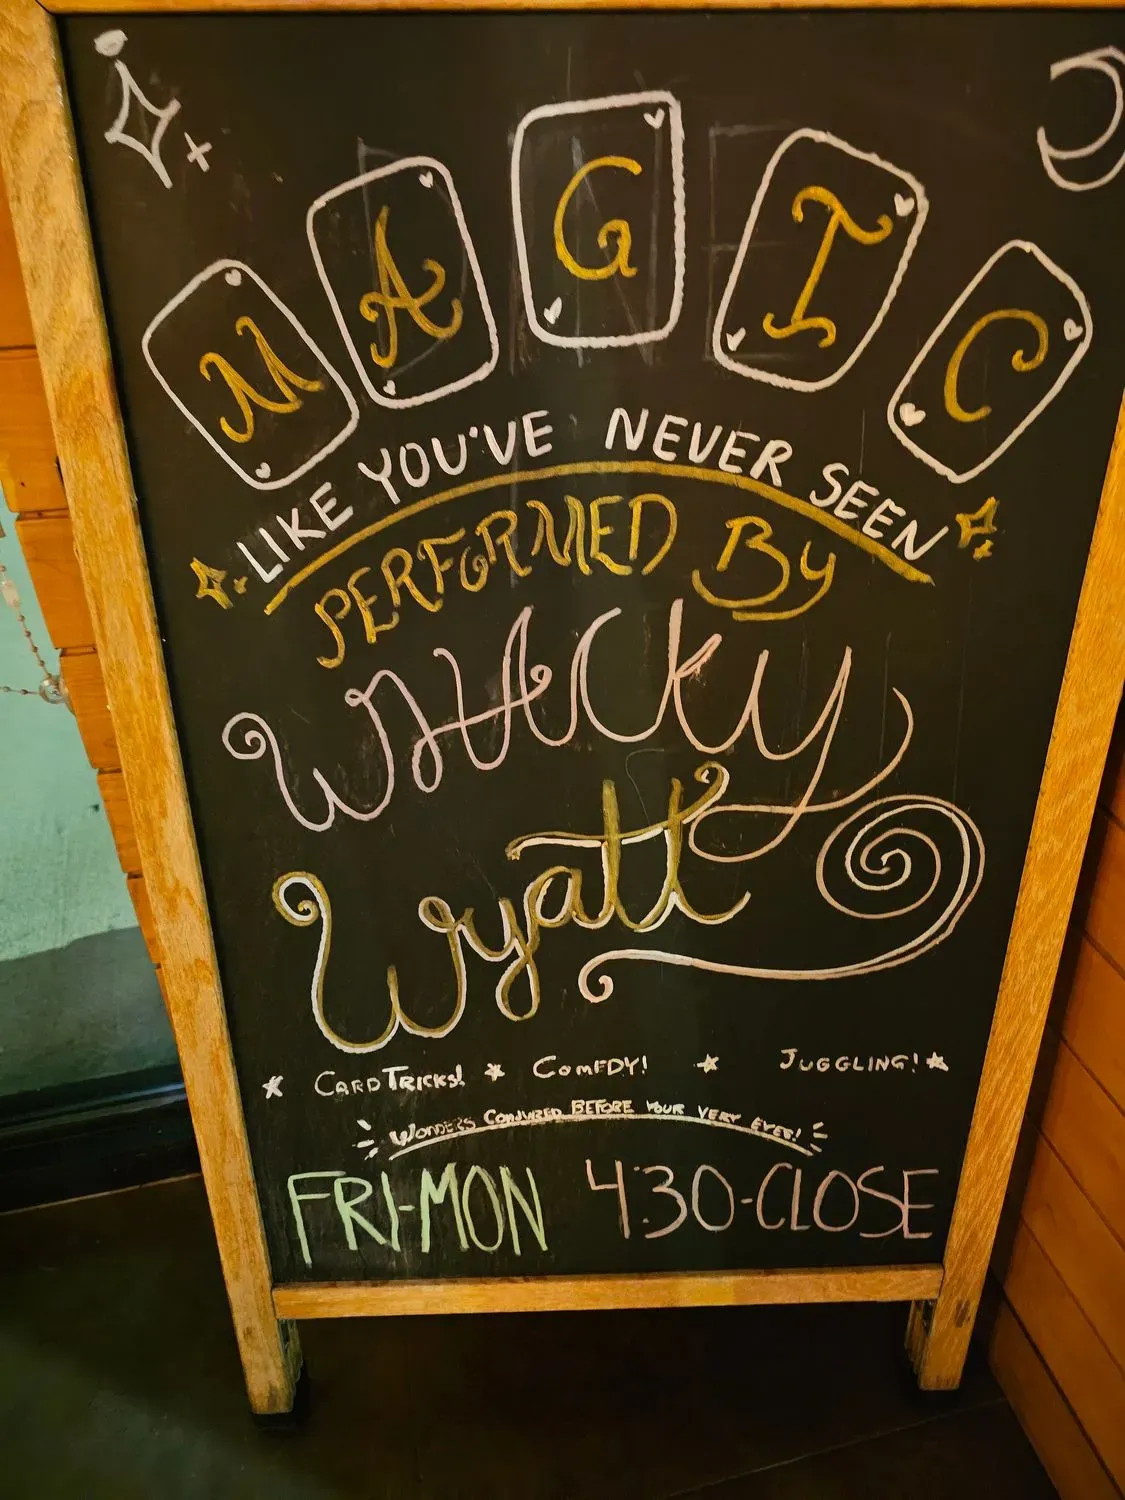 MAGIC
LIKE YOU'VE NEVER SEEN
PERFORMED By
WHACKY
Wyatt
CARD TRICKS! COMEDY! JUGGLING!
WONDERS CONJURED BEFORE YOUR VERY EYES!
FRI-MON 4:30-CLOSE